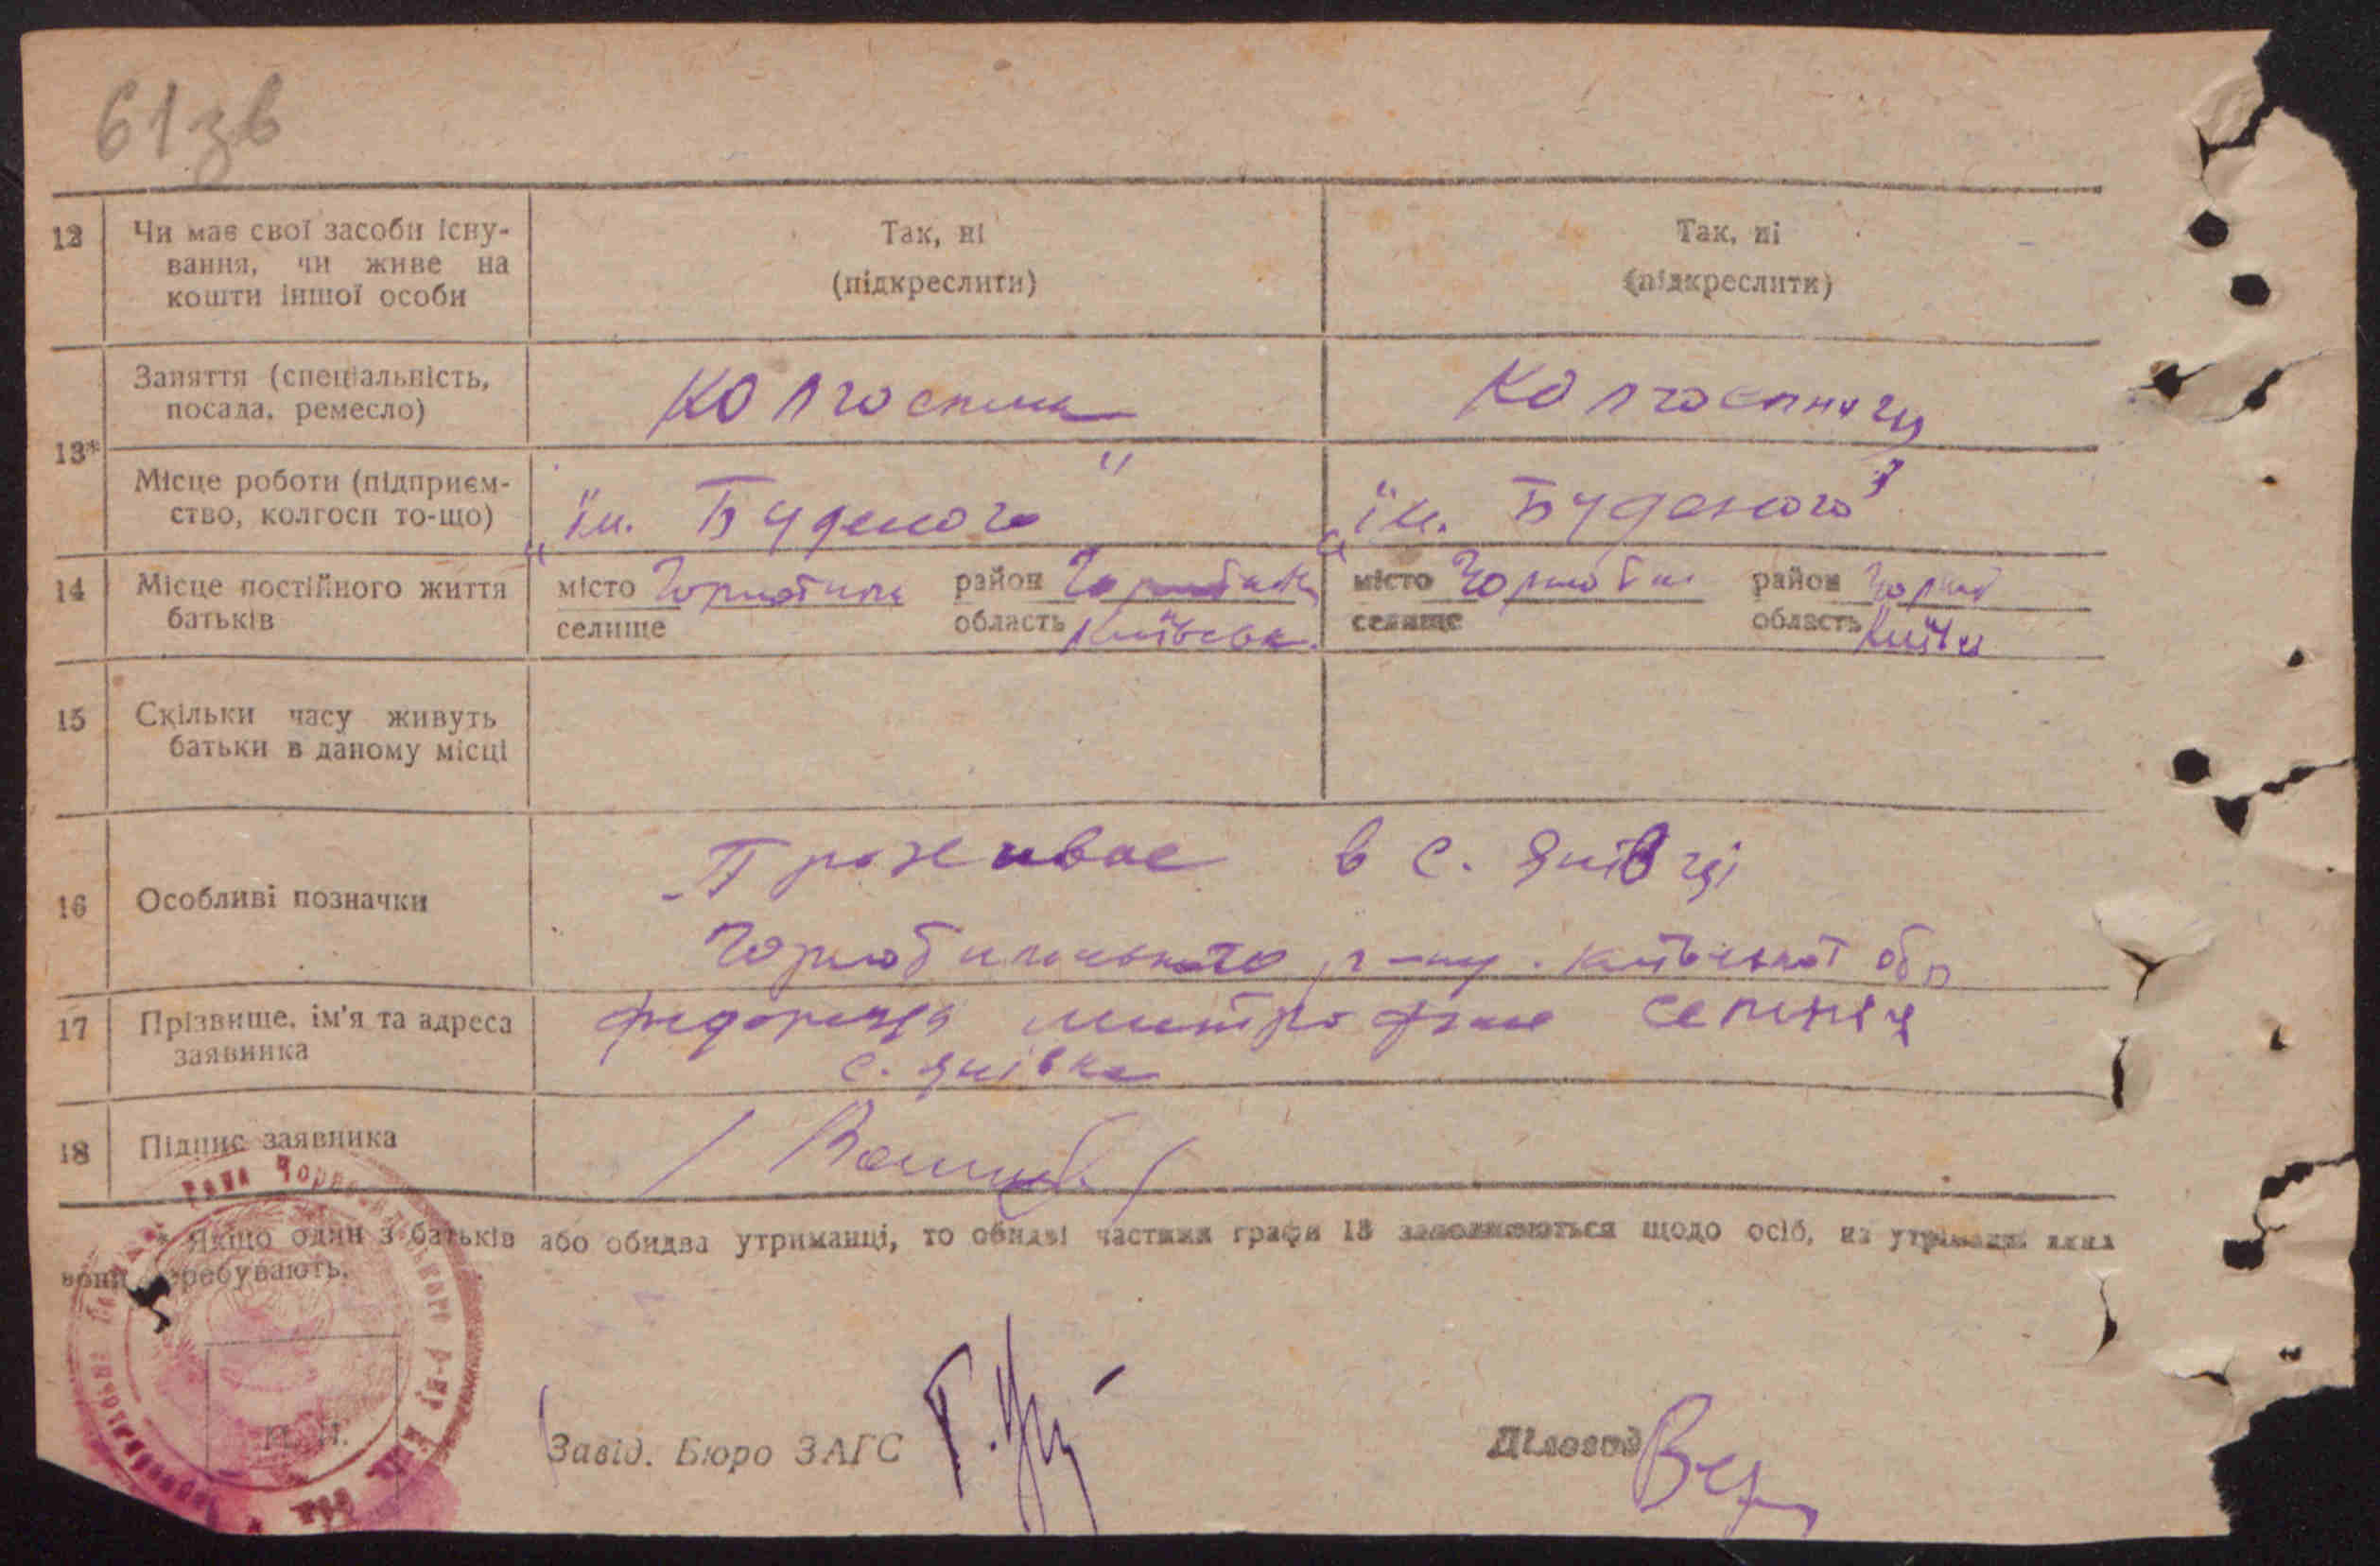 61зв
12 Чи має свої засоби існу-
вання, чи живе на
кошти іншої особи
Так, ні
(підкреслити)
Так, ні
(підкреслити)
13*
Заняття (спеціальність,
посада, ремесло)
Колгоспник
Колгоспниця
Місце роботи (підприєм-
ство, колгосп то-що)
„ім. Буденого"
„ім. Буденого"
14 Місце постійного життя
батьків
місто Чорнобиль район
селище область Київськ.
місто район Чорноб
селище область
15 Скільки часу живуть
батьки в даному місці
16 Особливі позначки
Проживає в с. Янівці
Чорнобильського р-ну. Київської обл
17 Прізвище, ім'я та адреса
заявника
с. Янівка
18 Підпис заявника
* Якщо один з батьків або обидва утриманці, то обидві частини графи 13 заповнюються щодо осіб, на утриманні яких
вони перебувають.
Рада Чорнобильського р-ну
М. П.
Завід. Бюро ЗАГС
Діловод